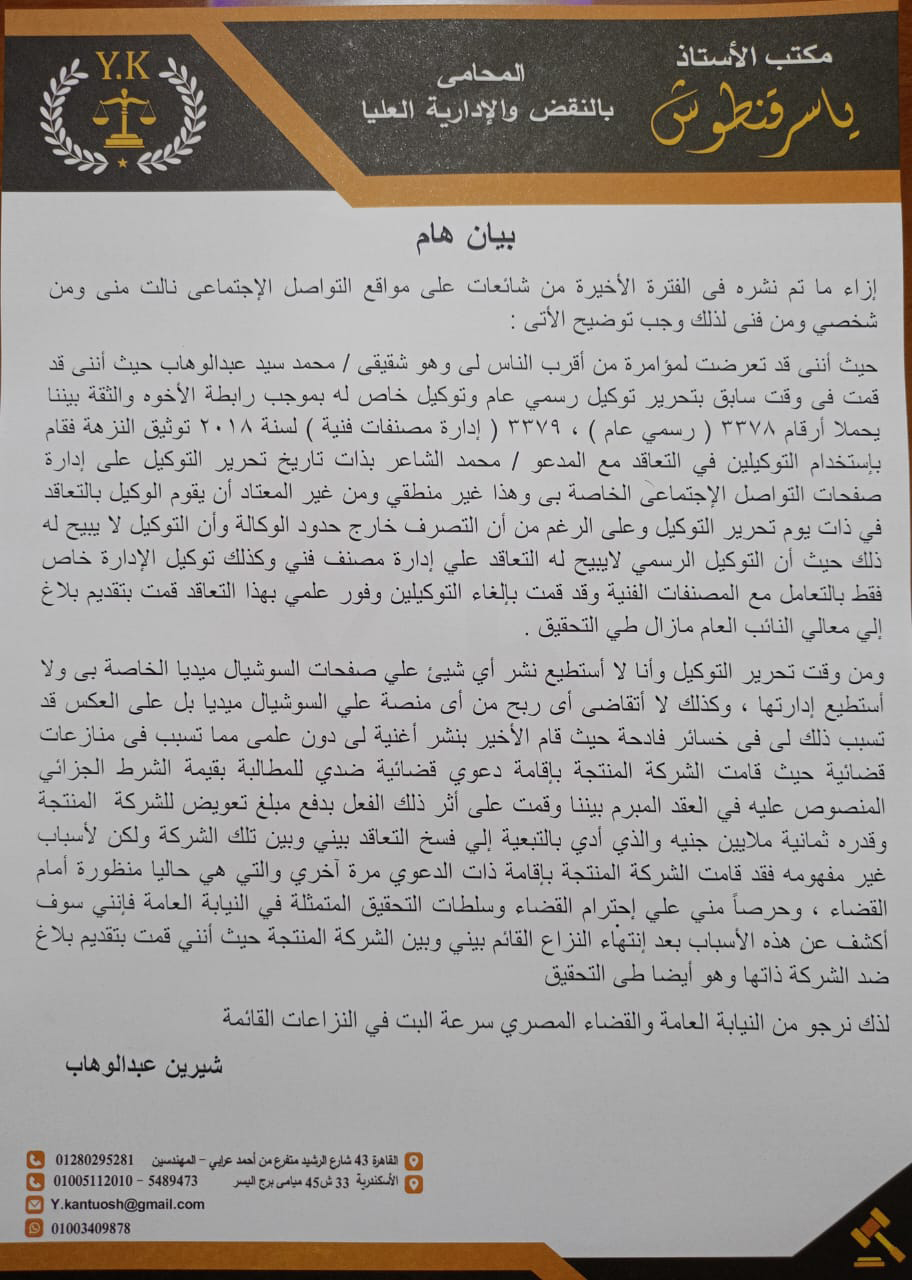 Y.K
مكتب الأستاذ
ياسر قنطوش
المحامى
بالنقض والإدارية العليا
بيان هام
إزاء ما تم نشره فى الفترة الأخيرة من شائعات على مواقع التواصل الإجتماعى نالت منى ومن
شخصي ومن فنى لذلك وجب توضيح الأتى :
حيث أننى قد تعرضت لمؤامرة من أقرب الناس لى وهو شقيقى / محمد سيد عبدالوهاب حيث أننى قد
قمت فى وقت سابق بتحرير توكيل رسمي عام وتوكيل خاص له بموجب رابطة الأخوه والثقة بيننا
يحملا أرقام ٣٣٧٨ ( رسمي عام ) ، ٣٣٧٩ ( إدارة مصنفات فنية ) لسنة ٢٠١٨ توثيق النزهة فقام
بإستخدام التوكيلين في التعاقد مع المدعو / محمد الشاعر بذات تاريخ تحرير التوكيل على إدارة
صفحات التواصل الإجتماعى الخاصة بى وهذا غير منطقي ومن غير المعتاد أن يقوم الوكيل بالتعاقد
في ذات يوم تحرير التوكيل وعلى الرغم من أن التصرف خارج حدود الوكالة وأن التوكيل لا يبيح له
ذلك حيث أن التوكيل الرسمي لايبيح له التعاقد علي إدارة مصنف فني وكذلك توكيل الإدارة خاص
فقط بالتعامل مع المصنفات الفنية وقد قمت بإلغاء التوكيلين وفور علمي بهذا التعاقد قمت بتقديم بلاغ
إلي معالي النائب العام مازال طي التحقيق .
ومن وقت تحرير التوكيل وأنا لا أستطيع نشر أي شيئ علي صفحات السوشيال ميديا الخاصة بى ولا
أستطيع إدارتها ، وكذلك لا أتقاضى أى ربح من أى منصة علي السوشيال ميديا بل على العكس قد
تسبب ذلك لى فى خسائر فادحة حيث قام الأخير بنشر أغنية لى دون علمى مما تسبب فى منازعات
قضائية حيث قامت الشركة المنتجة بإقامة دعوي قضائية ضدي للمطالبة بقيمة الشرط الجزائي
المنصوص عليه في العقد المبرم بيننا وقمت على أثر ذلك الفعل بدفع مبلغ تعويض للشركة المنتجة
وقدره ثمانية ملايين جنيه والذي أدي بالتبعية إلي فسخ التعاقد بيني وبين تلك الشركة ولكن لأسباب
غير مفهومه فقد قامت الشركة المنتجة بإقامة ذات الدعوي مرة آخري والتي هي حاليا منظورة أمام
القضاء ، وحرصاً مني علي إحترام القضاء وسلطات التحقيق المتمثلة في النيابة العامة فإنني سوف
أكشف عن هذه الأسباب بعد إنتهاء النزاع القائم بيني وبين الشركة المنتجة حيث أنني قمت بتقديم بلاغ
ضد الشركة ذاتها وهو أيضا طى التحقيق
لذك نرجو من النيابة العامة والقضاء المصري سرعة البت في النزاعات القائمة
شيرين عبدالوهاب
القاهرة 43 شارع الرشيد متفرع من أحمد عرابي - المهندسين 01280295281
الأسكندرية 33 ش45 ميامى برج اليسر 01005112010 - 5489473
Y.kantuosh@gmail.com
01003409878